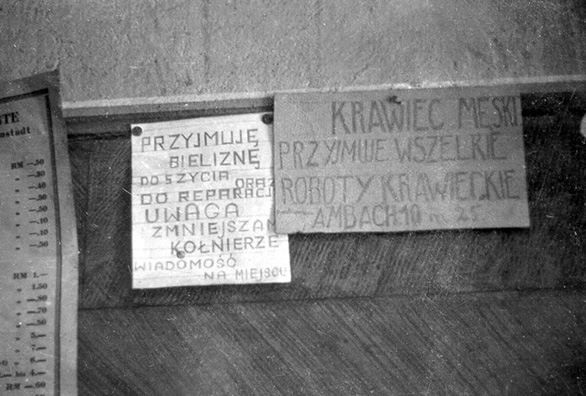 STE
nstadt
RM -.50
" -.30
" -.40
" -.30
" -.50
" -.10
" -.10
" -.30
RM 1.—
" 1.50
" -.80
" -.70
" -.50
" 5.—
" 7.—
" 6.—
" bis 4.—
RM -.60
PRZYJMUJĘ
BIELIZNĘ
DO SZYCIA ORAZ
DO REPARACJI
UWAGA
ZMNIEJSZAM
KOŁNIERZE
WIADOMOŚĆ
NA MIEJSCU
KRAWIEC MĘSKI
PRZYJMUJE WSZELKIE
ROBOTY KRAWIECKIE
AMBACH 10 m. 25